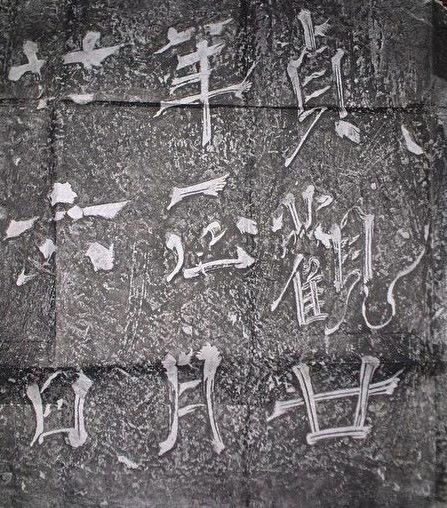 貞觀廿
年正月
廿六日